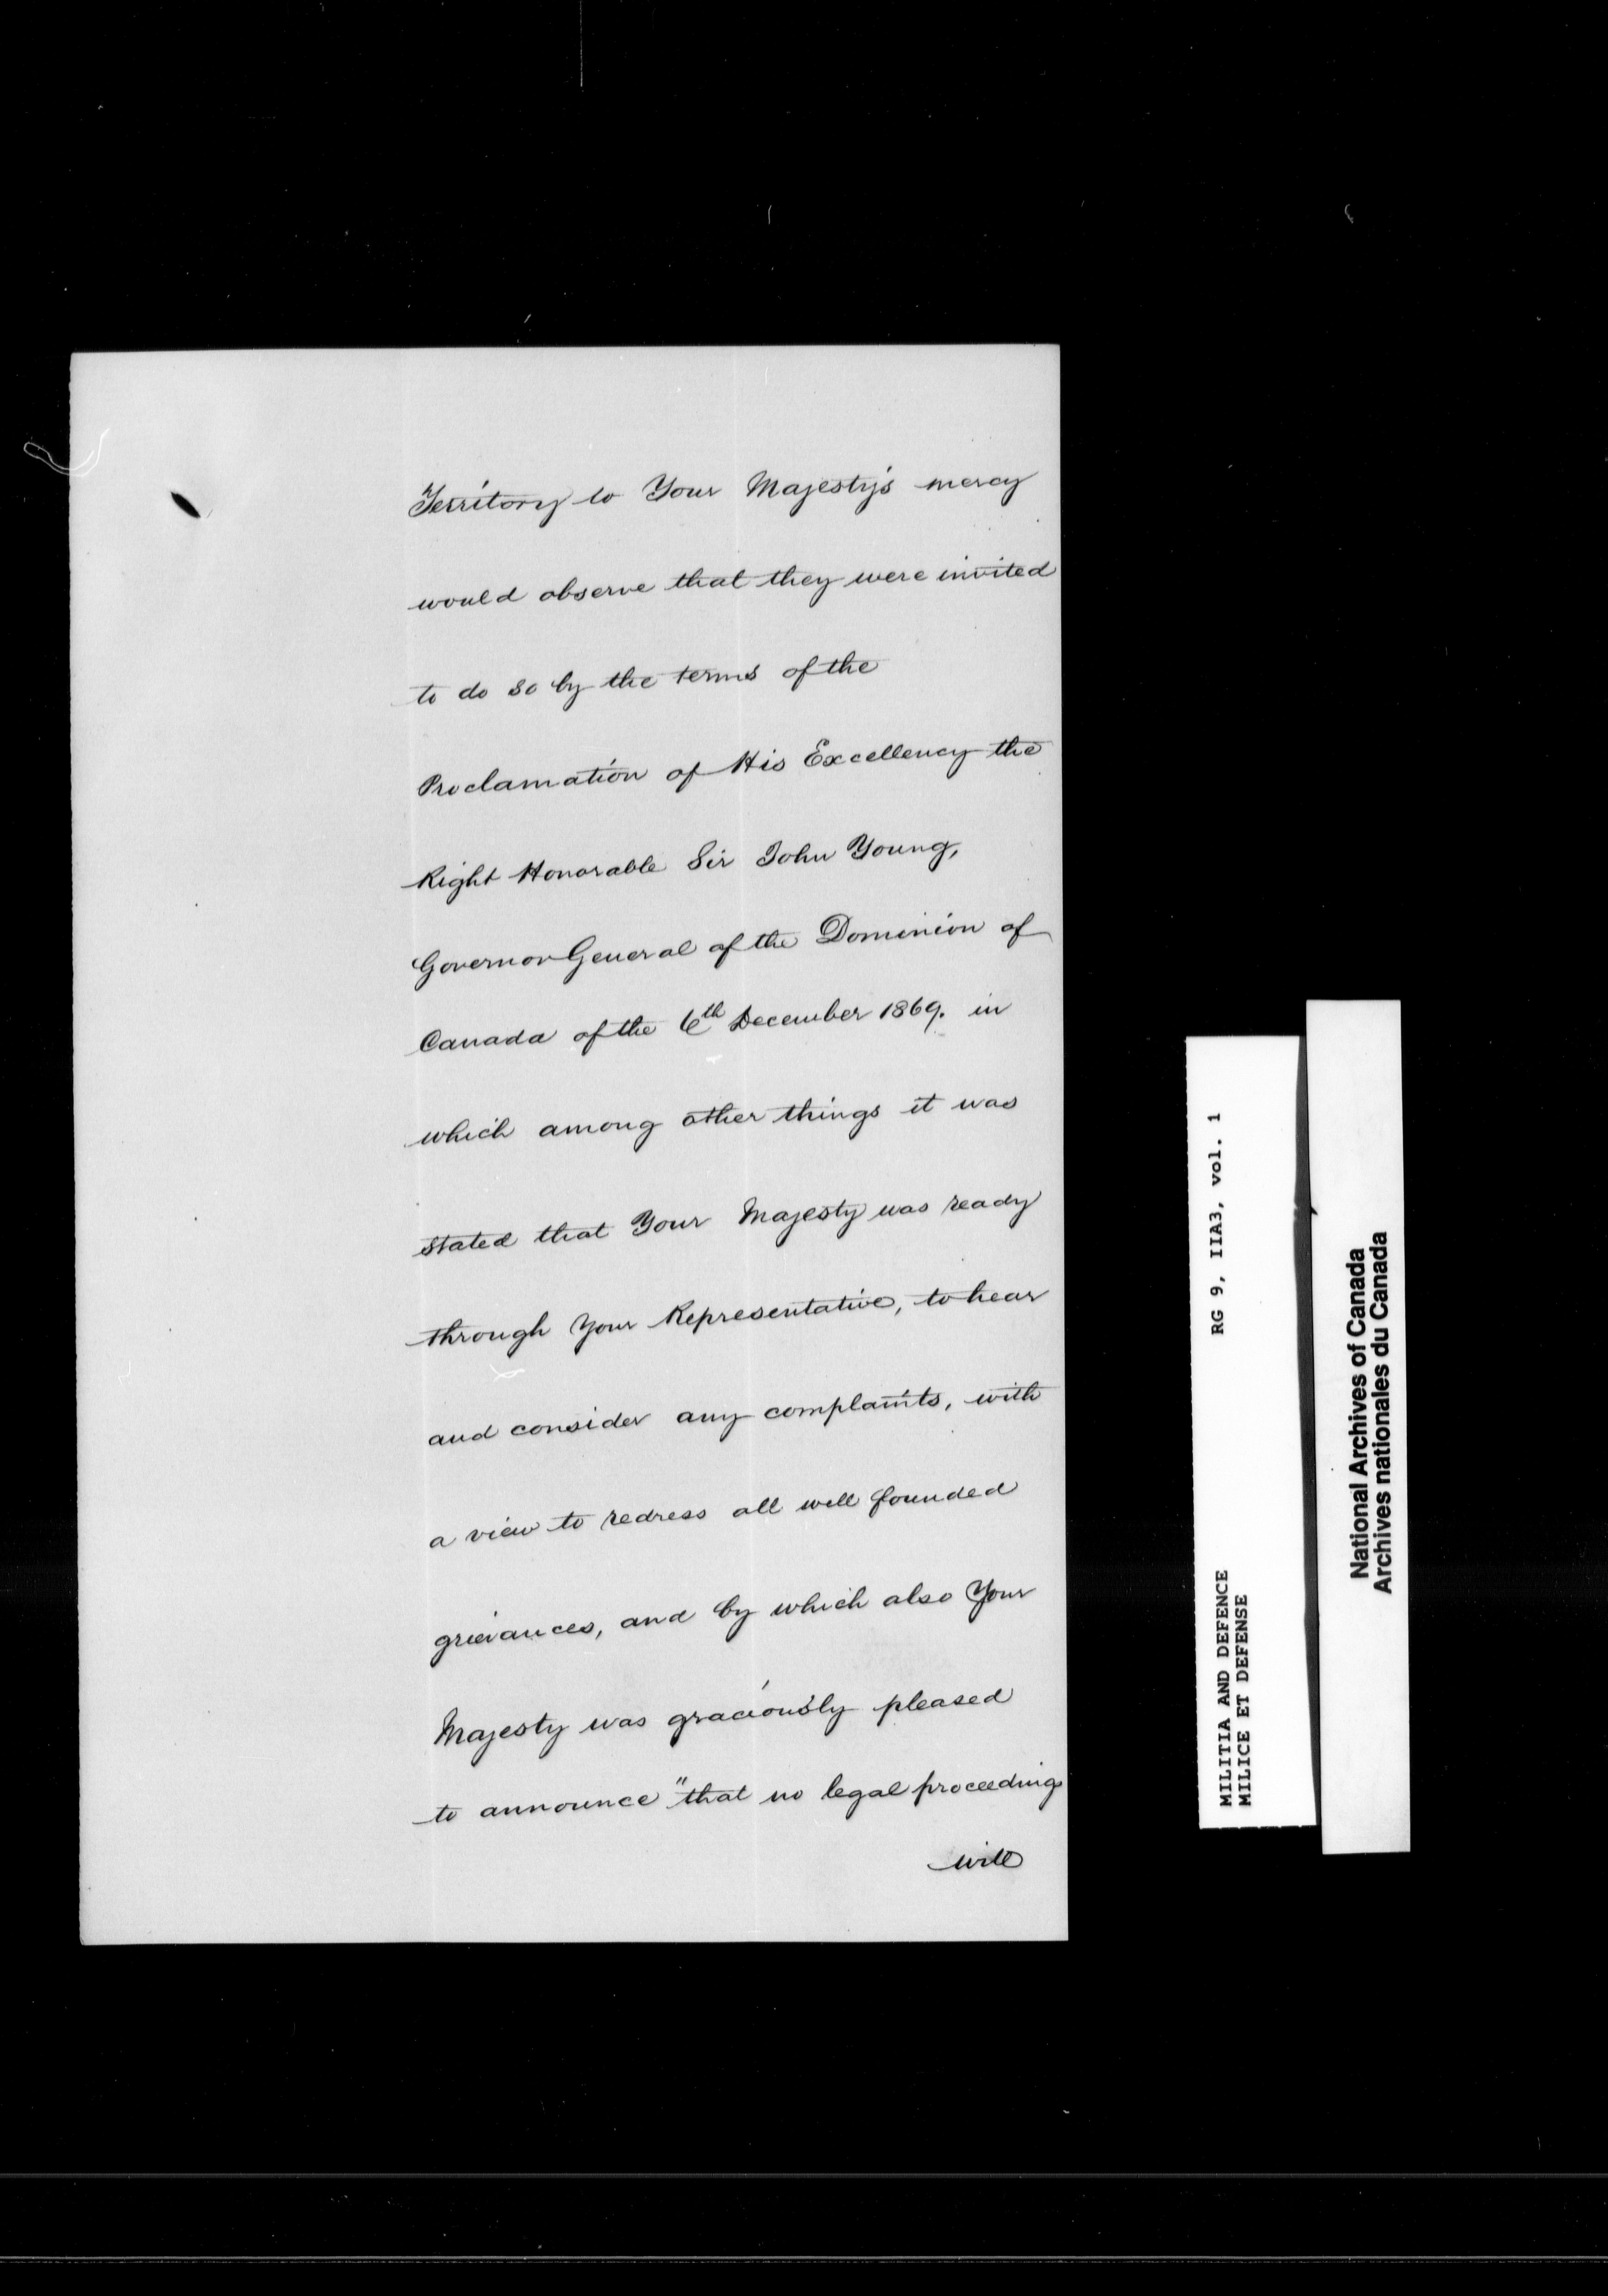 Territory to Your Majesty's mercy
would observe that they were invited
to do so by the terms of the
Proclamation of His Excellency the
Right Honorable Sir John Young,
Governor General of the Dominion of
Canada of the 6th December 1869. in
which among other things it was
stated that Your Majesty was ready
through Your Representative, to hear
and consider any complaints, with
a view to redress all well founded
grievances, and by which also Your
Majesty was graciously pleased
to announce "that no legal proceedings
will
MILITIA AND DEFENCE RG 9, IIA3, vol. 1
MILICE ET DEFENSE
National Archives of Canada
Archives nationales du Canada